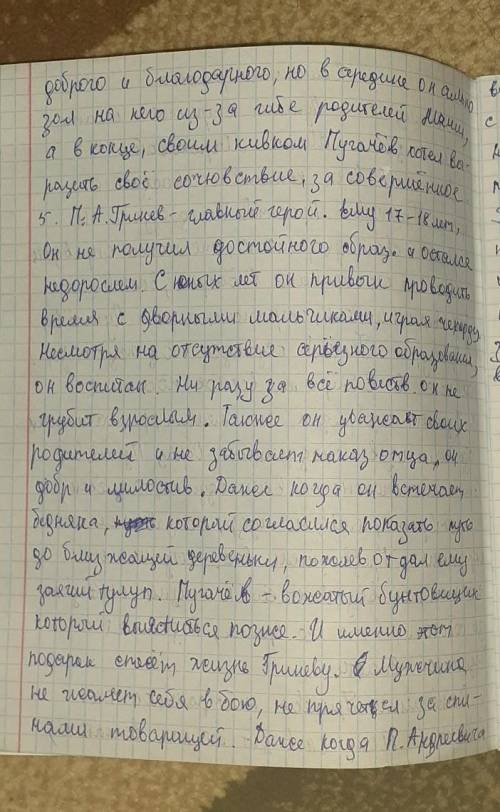 доброго и благодарного, но в середине он сильно
зол на него из-за гибе родителей Маши,
а в конце, своим кивком Пугачёв хотел вы-
разить своё сочювствие, за совершённое
5. П. А. Гринев - главный герой. Ему 17-18 лет,
Он не получил достойного образ. и остался
недорослем. С юных лет он привык проводить
время с дворными мальчиками, играя чехарду
Несмотря на отсутствие серьёзного образования,
он воспитан. Ни разу за всё повеств. он не
грубит взрослым. Также он уважает своих
родителей и не забывает наказ отца, он
добр и милостив. Даже когда он встречает
бедняка, который согласился показать путь
до ближайщей деревеньки, пожалев отдал ему
заячий тулуп. Пугачёв - вожатый бунтовщик
который выясниться позже. И именно этот
подарок спасёт жизнь Гриневу. Мужчина
не жалеет себя в бою, не прячется за спи-
нами товарищей. Даже когда П. Андреевича